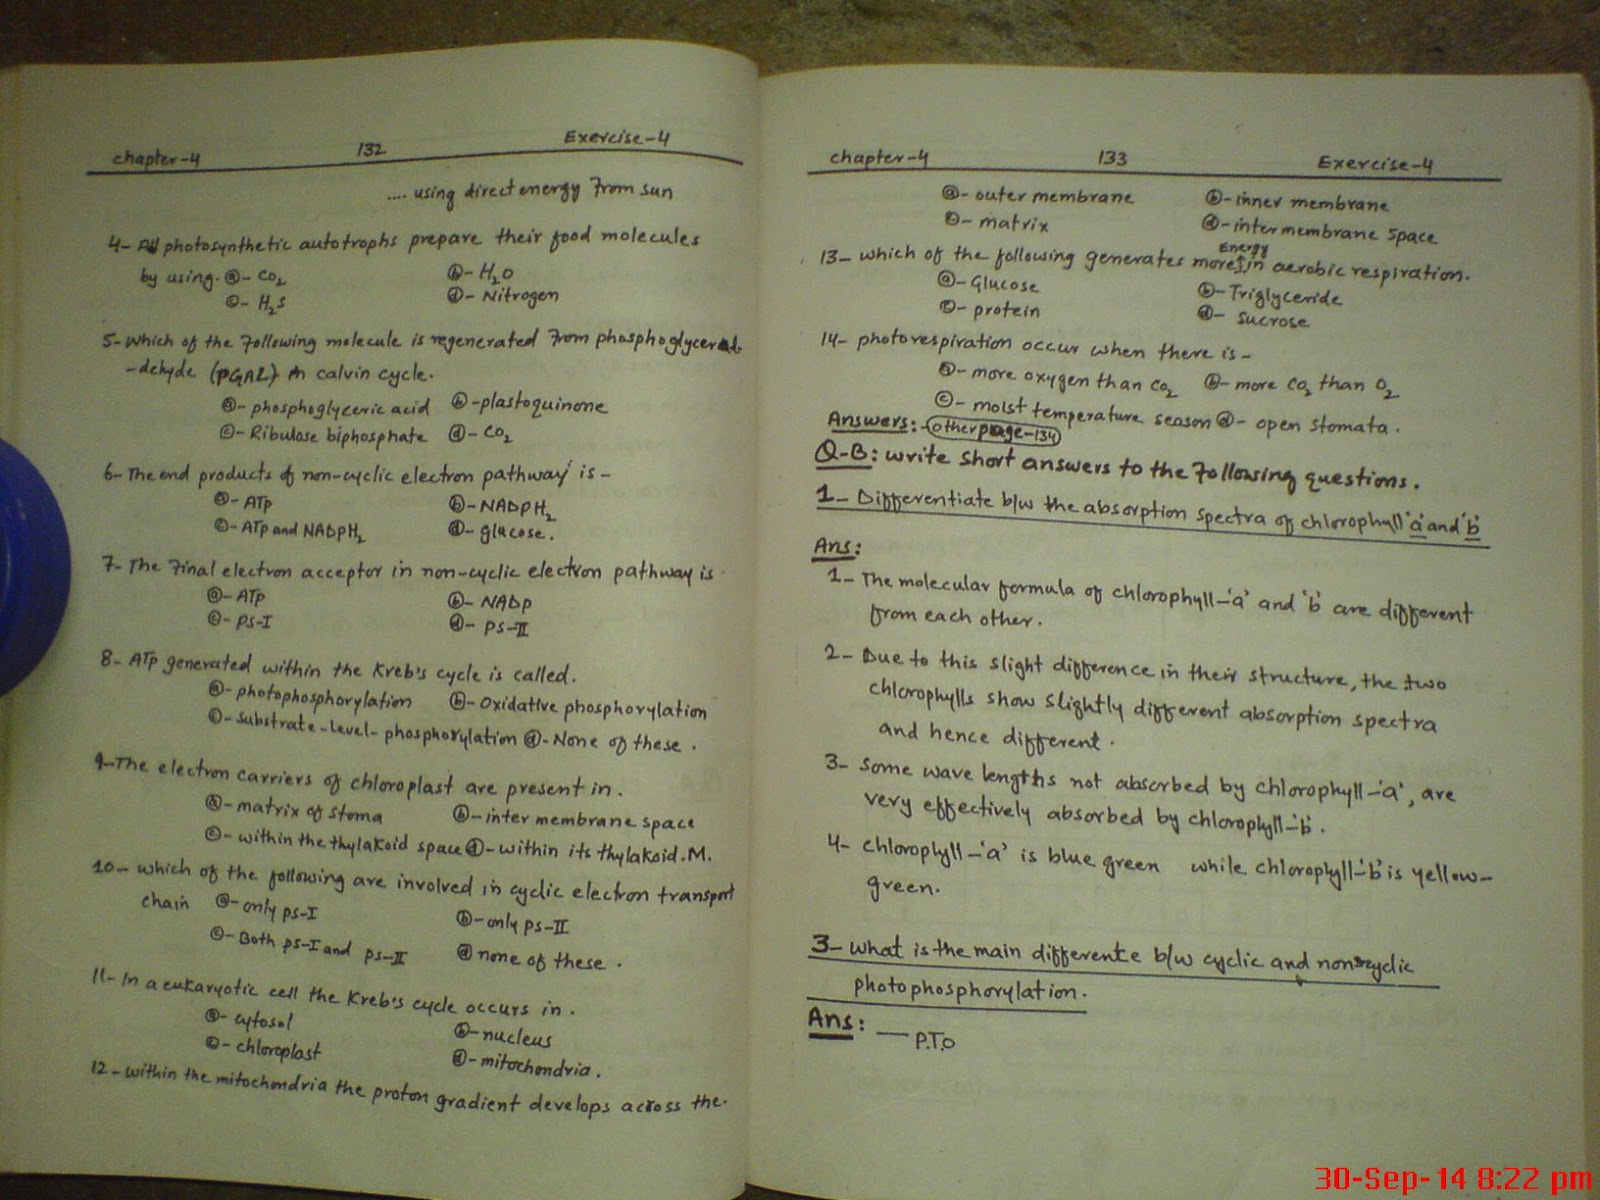 chapter-4 132 Exercise-4
.... using direct energy From sun
4- All photosynthetic autotrophs prepare their food molecules
by using. ⓐ- CO₂ ⓑ- H₂O
ⓒ- H₂S ⓓ- Nitrogen
5- Which of the Following molecule is regenerated From phosphoglyceral-
-dehyde (PGAL) in calvin cycle.
ⓐ- phosphoglyceric acid ⓑ- plastoquinone
ⓒ- Ribulose biphosphate ⓓ- CO₂
6- The end products of non-cyclic electron pathway is -
ⓐ- ATP ⓑ- NADPH₂
ⓒ- ATP and NADPH₂ ⓓ- glucose.
7- The Final electron acceptor in non-cyclic electron pathway is
ⓐ- ATP ⓑ- NADP
ⓒ- PS-I ⓓ- PS-II
8- ATP generated within the Kreb's cycle is called.
ⓐ- photophosphorylation ⓑ- Oxidative phosphorylation
ⓒ- Substrate-level-phosphorylation ⓓ- None of these.
9- The electron carriers of chloroplast are present in.
ⓐ- matrix of stoma ⓑ- inter membrane space
ⓒ- within the thylakoid space ⓓ- within its thylakoid.M.
10- which of the following are involved in cyclic electron transport
chain ⓐ- only PS-I ⓑ- only PS-II
ⓒ- Both PS-I and PS-II ⓓ none of these.
11- In a eukaryotic cell the Kreb's cycle occurs in.
ⓐ- cytosol ⓑ- nucleus
ⓒ- chloroplast ⓓ- mitochondria.
12- within the mitochondria the proton gradient develops across the.
chapter-4 133 Exercise-4
ⓐ- outer membrane ⓑ- inner membrane
ⓒ- matrix ⓓ- inter membrane Space
Energy
13- which of the following generates more in aerobic respiration.
ⓐ- Glucose ⓑ- Triglyceride
ⓒ- protein ⓓ- Sucrose
14- photorespiration occur when there is -
ⓐ- more oxygen than CO₂ ⓑ- more CO₂ than O₂
ⓒ- moist temperature season ⓓ- open stomata.
Answers: - Other page-134
Q-B: write short answers to the Following questions.
1- Differentiate b/w the absorption spectra of chlorophyll 'a' and 'b'
Ans:
1- The molecular formula of chlorophyll-'a' and 'b' are different
from each other.
2- Due to this slight difference in their structure, the two
chlorophylls show slightly different absorption spectra
and hence different.
3- some wave lengths not absorbed by chlorophyll-'a', are
very effectively absorbed by chlorophyll-'b'.
4- chlorophyll-'a' is blue green while chlorophyll-'b' is yellow-
green.
3- what is the main differente b/w cyclic and noncyclic
photophosphorylation.
Ans: — P.T.O
30-Sep-14 8:22 pm